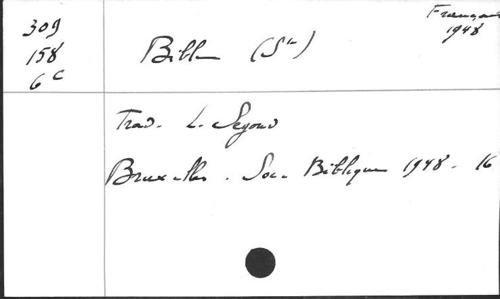 309
158
6 C
Bible (Ste)
Français
1948
Trad. L. Segond
Bruxelles. Soc. Biblique 1948 - 16